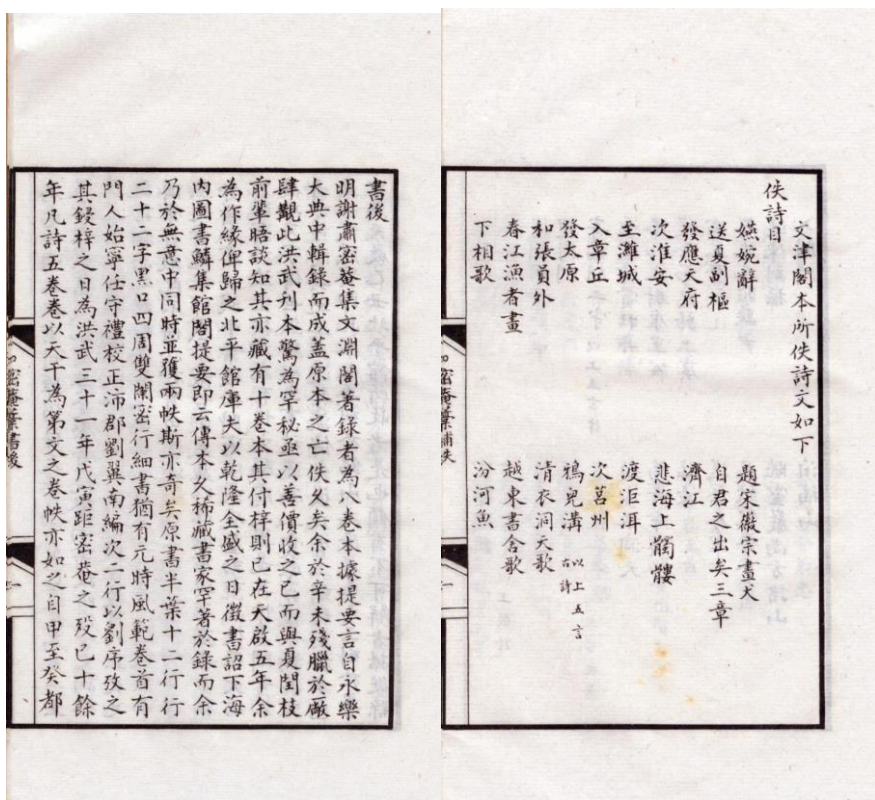 文津閣本所佚詩文如下
佚詩目
嬿婉辭　題宋徽宗畫犬
送夏副樞　自君之出矣三章
發應天府　濟江
次淮安　悲海上髑髏
至濰城　渡洰洱
入章丘　次莒州
發太原　鵶兒溝 以上五言古詩
和張員外　清衣洞天歌
春江漁者畫　越東書舍歌
下相歌　汾河魚
密菴藁補佚　一
書後
明謝肅密菴集文淵閣著錄者為八卷本據提要言自永樂
大典中輯錄而成蓋原本之亡佚久矣余於辛未殘臘於廠
肆觀此洪武刋本驚為罕秘亟以善價收之已而與夏閏枝
前輩晤談知其亦藏有十卷本其付梓則已在天啟五年余
為作緣俾歸之北平館庫夫以乾隆全盛之日徵書詔下海
內圖書鱗集館閣提要即云傳本久稀藏書家罕著於錄而余
乃於無意中同時並獲兩帙斯亦奇矣原書半葉十二行行
二十二字黑口四周雙闌密行細書猶有元時風範卷首有
門人始寧任守禮校正沛郡劉翼南編次二行以劉序攷之
其鋟梓之日為洪武三十一年戊寅距密菴之歿已十餘
年凡詩五卷卷以天干為第文之卷帙亦如之自甲至癸都
密菴藁書後　一